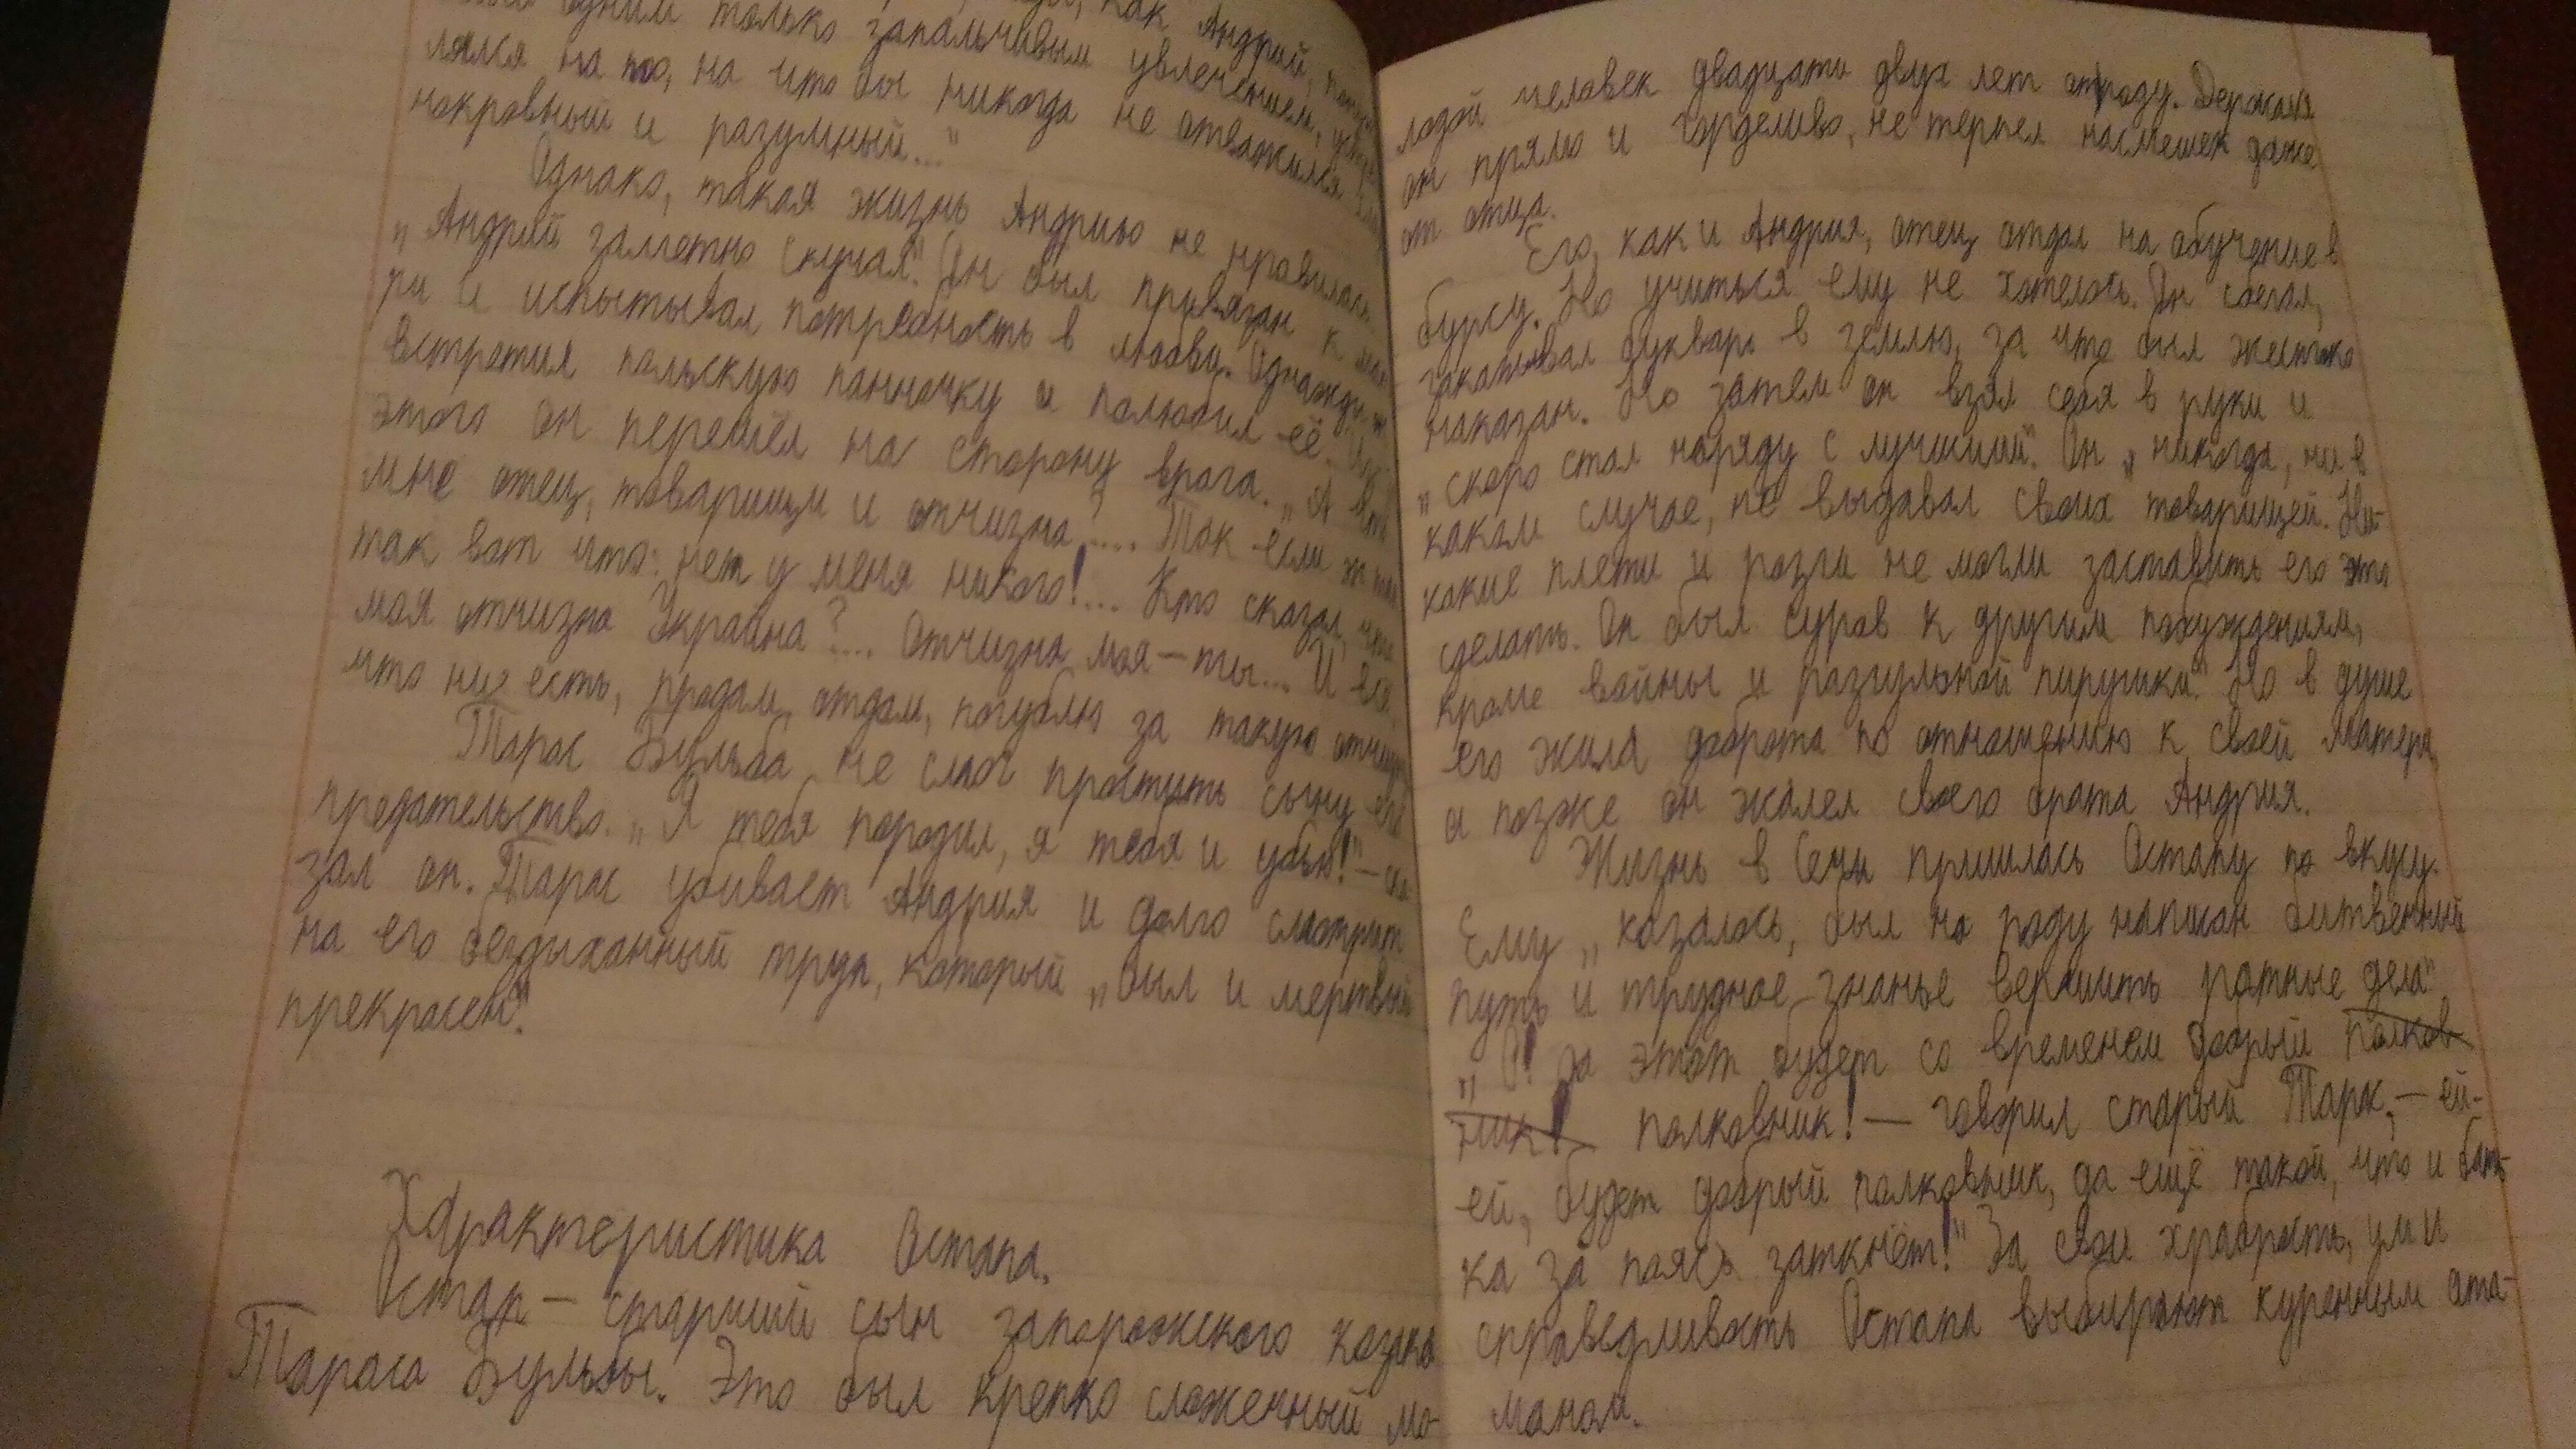 одним только запальчивым увлечением,
лялся на то, на что бы никогда не отважился
нокровный и разумный..."
Однако, такая жизнь Андрию не нравилась.
„Андрий заметно скучал". Он был привязан к
ри и испытывал потребность в любви. Однажды
встретил польскую панночку и полюбил её.
этого он перешёл на сторону врага. „А что
мне отец, товарищи и отчизна?... Так если ж
так вот что: нет у меня никого!... Кто сказал, что
моя отчизна Украина?... Отчизна моя – ты... И всё,
что ни есть, продам, отдам, погублю за такую отчизну
Тарас Бульба не смог простить сыну его
предательство. „Я тебя породил, я тебя и убью!" – ска-
зал он. Тарас убивает Андрия и долго смотрит
на его бездыханный труп, который „был и мёртвый
прекрасен".
Характеристика Остапа.
Остап – старший сын запорожского козака
Тараса Бульбы. Это был крепко сложенный мо-
лодой человек двадцати двух лет отроду. Держался
он прямо и горделиво, не терпел насмешек даже
от отца.
Его, как и Андрия, отец отдал на обучение в
бурсу. Но учиться ему не хотелось. Он сбегал,
закапывал букварь в землю, за что был жестоко
наказан. Но затем он взял себя в руки и
„скоро стал наряду с лучшими". Он „никогда, ни в
каком случае, не выдавал своих товарищей. Ни-
какие плети и розги не могли заставить его это
сделать. Он был суров к другим побуждениям,
кроме войны и разгульной пирушки". Но в душе
его жила доброта по отношению к своей матери,
а позже он жалел своего брата Андрия.
Жизнь в Сечи пришлась Остапу по вкусу.
Ему „казалось, был на роду написан битвенный
путь и трудное знанье вершить ратные дела"
„О! да этот будет со временем добрый полков
ник! полковник! – говорил старый Тарас, – ей-
ей, будет добрый полковник, да ещё такой, что и бать-
ка за пояс заткнёт!" За свои храбрость, ум и
справедливость Остапа выбирают куренным ата-
маном.